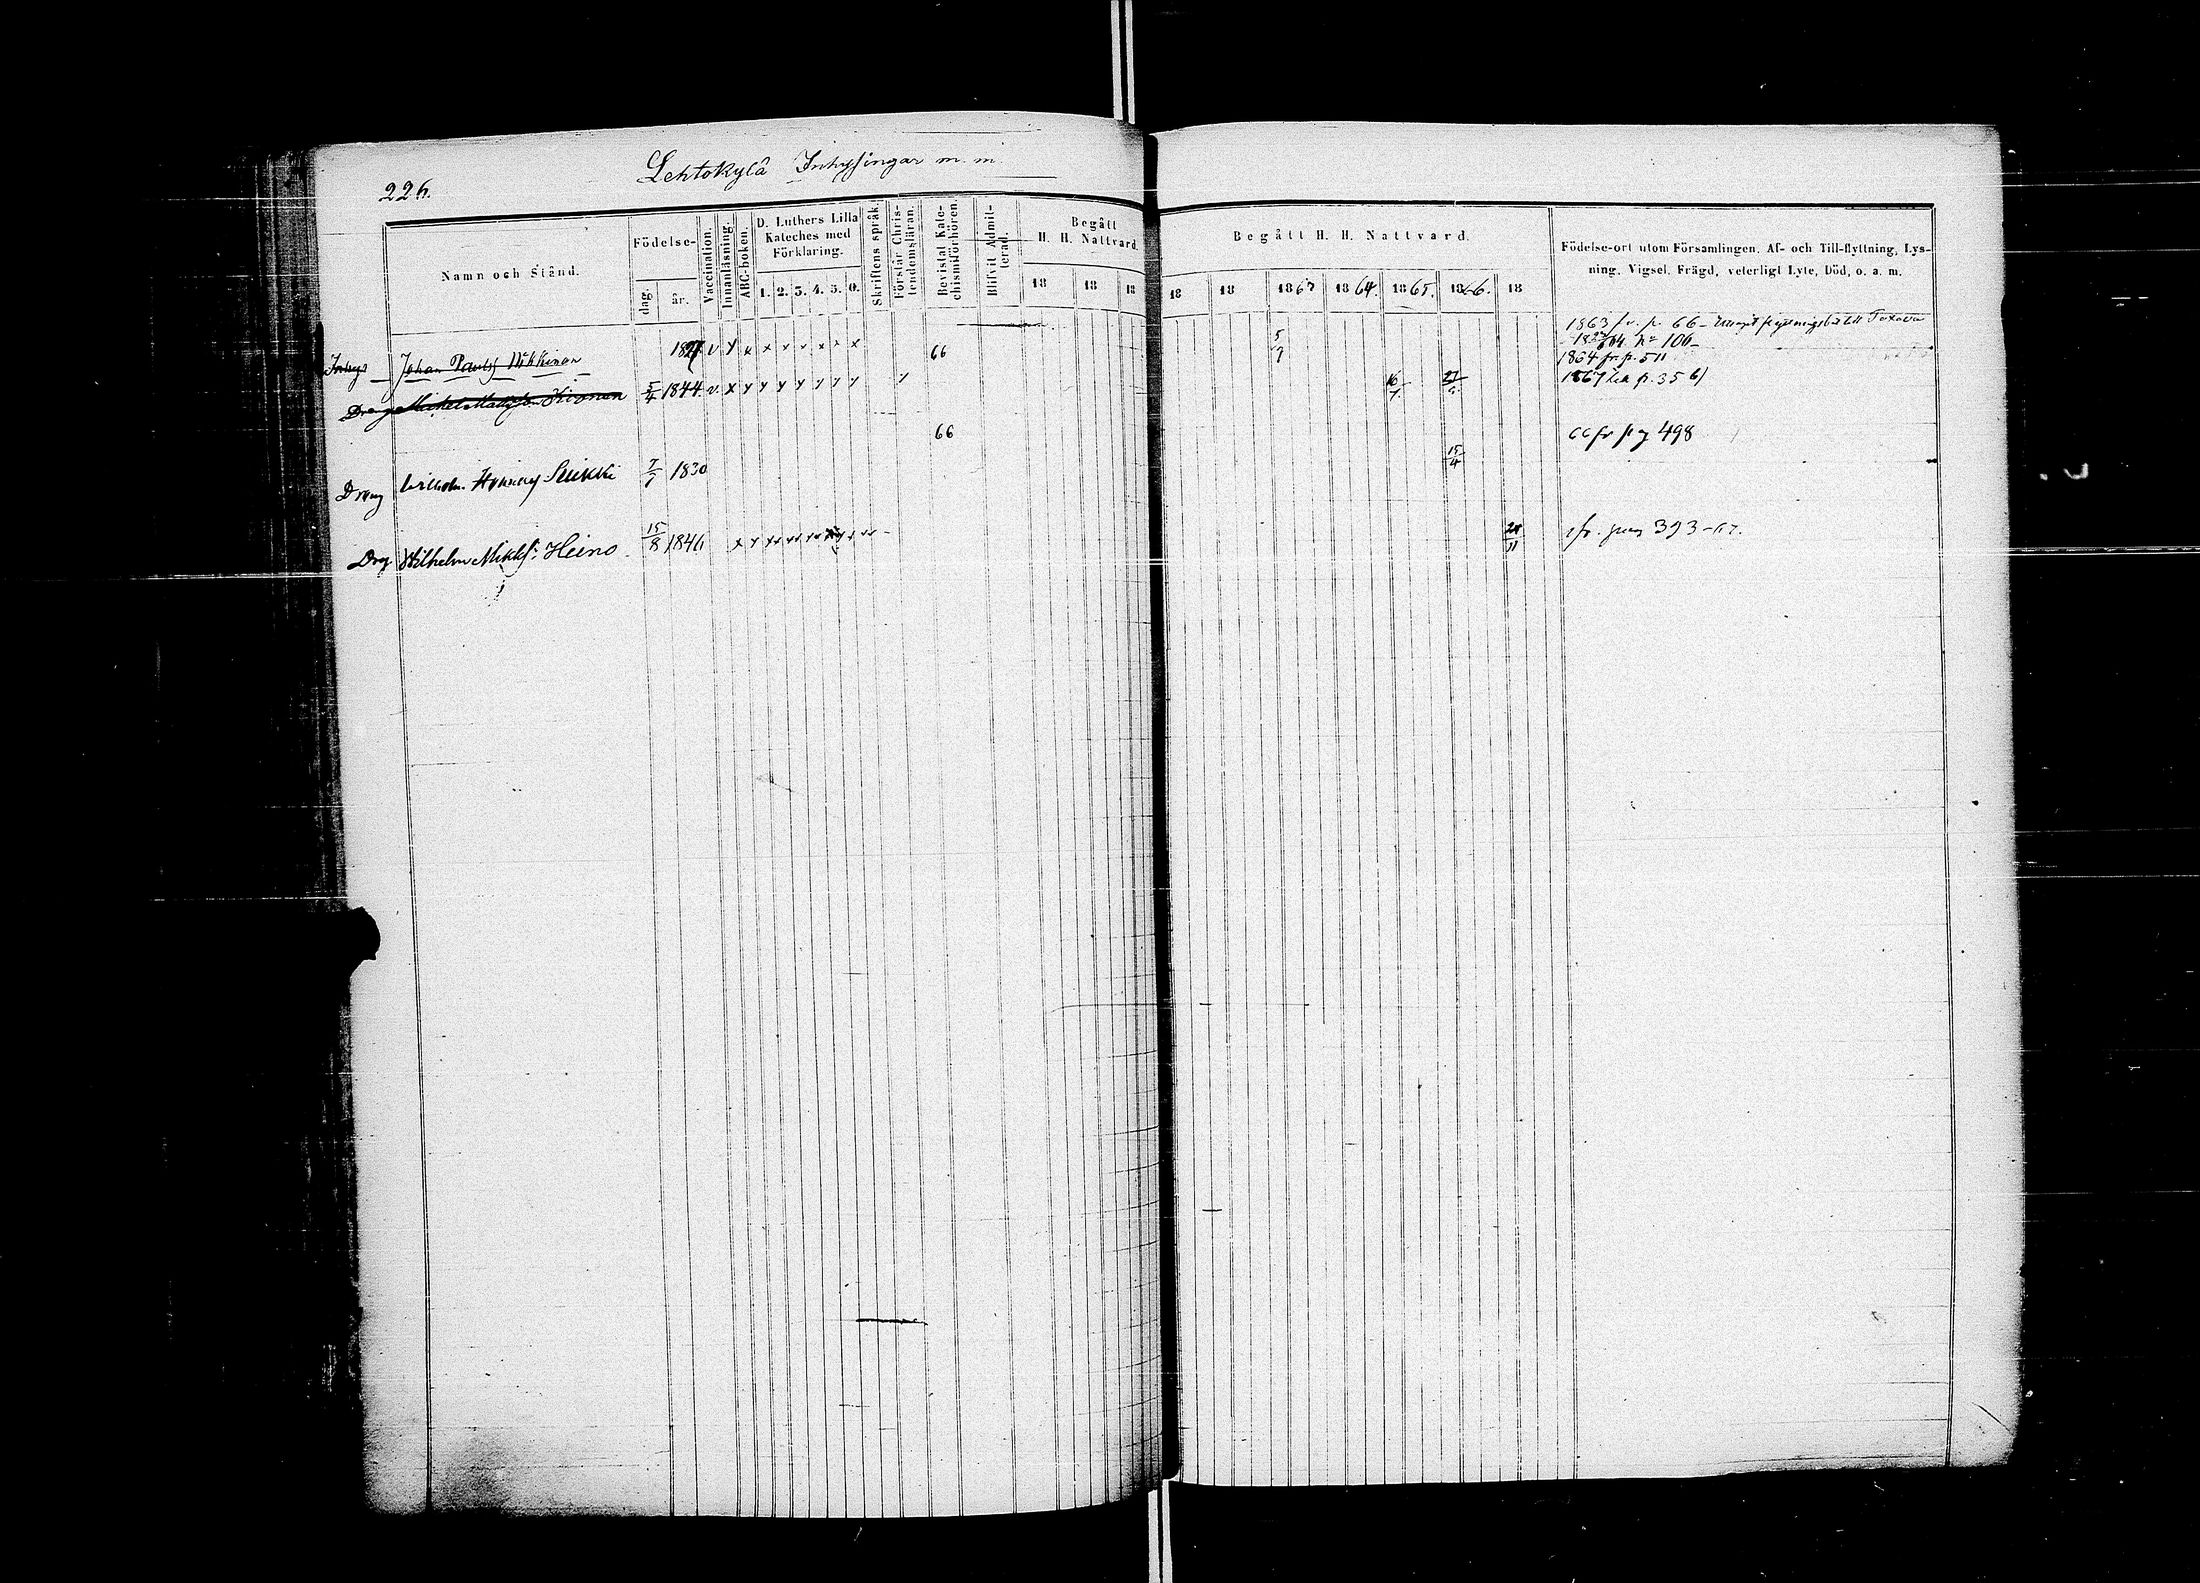 226.
Lehtokylä Inhysingar m. m.
Namn och Stånd.
Födelse-
dag.
år.
Vaccination.
Innanläsning.
ABC-boken.
D. Luthers Lilla
Kateches med
Förklaring.
1. 2. 3. 4. 5. 0.
Skriftens språk.
Förstår Chris-
tendomsläran.
Bevistat Kate-
chismiförhören.
Blifvit Admit-
terad.
Begått
H. H. Nattvard.
18 18 18
Begått H. H. Nattvard.
18 18 1863 1864. 1865. 1866. 18
Födelse-ort utom Församlingen, Af- och Till-flyttning, Lys-
ning, Vigsel, Frägd, veterligt Lyte, Död, o. a. m.
Inhys Johan Paulsf 1827 v x x x x x x x x 66 5/7 1863 fr. p. 66
No 106
Dräng Michel Kionen 5/4 1844. v. x x y y y y y y 1864 fr p. 511
1867 p. 356
66
Dräng Wilhelm Sukki 7/7 1830 15/4 66 fr pg 498
Drg Wilhelm Mikkelsf: Heino 15/8 1846 fr. pag 393-67.